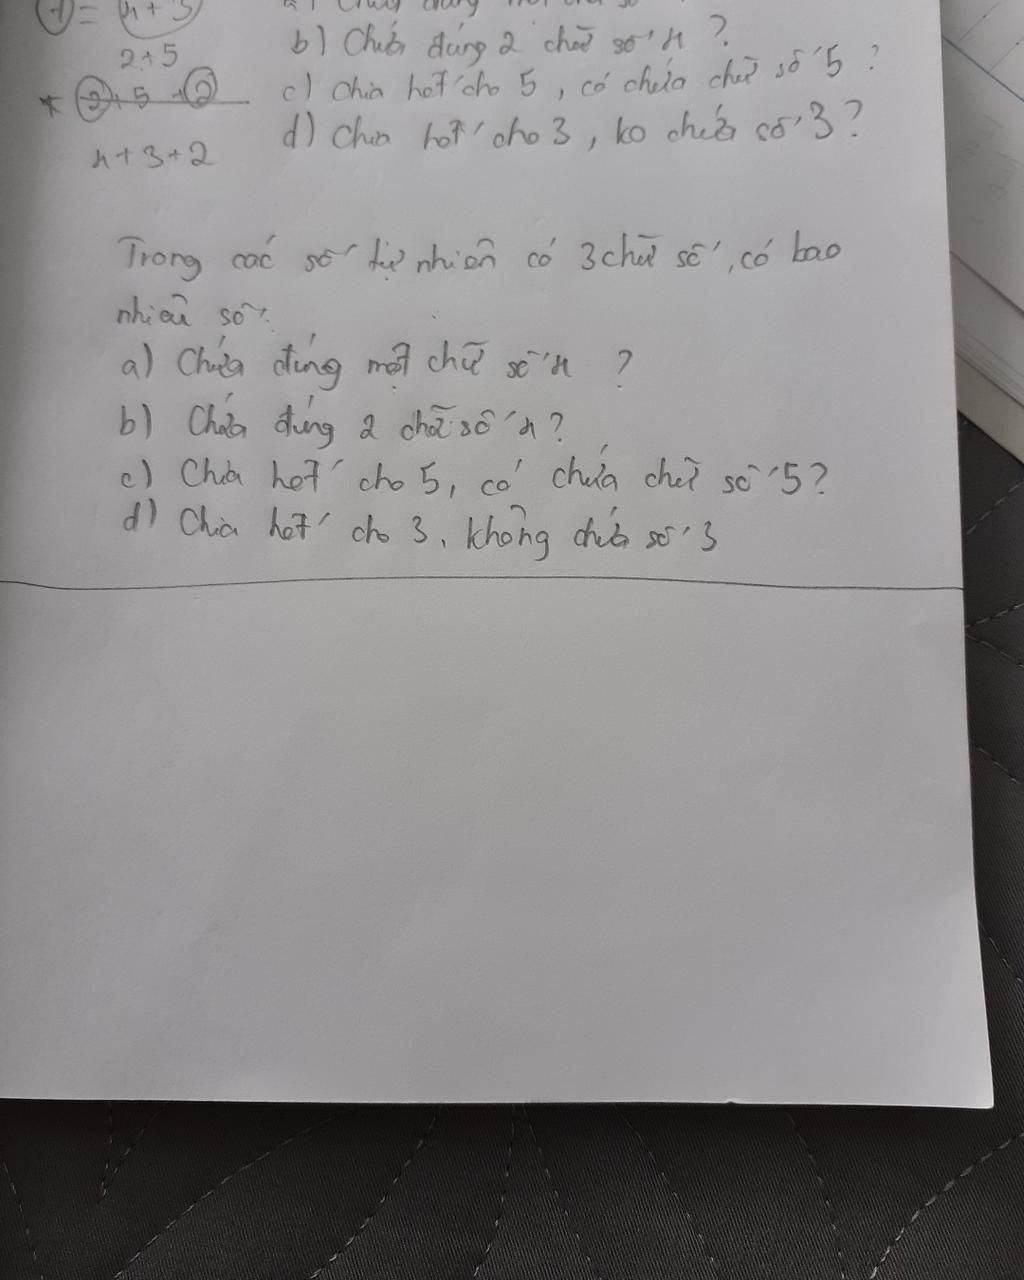 b) Chứa đúng 2 chữ số 4 ?
2+5
c) Chia hết cho 5, có chứa chữ số 5 ?
2 + 5 + 2
d) Chia hết cho 3, ko chứa số 3 ?
4+3+2
Trong các số tự nhiên có 3 chữ số, có bao
nhiêu số:
a) Chứa đúng một chữ số 4 ?
b) Chứa đúng 2 chữ số 4 ?
c) Chia hết cho 5, có chứa chữ số 5?
d) Chia hết cho 3, không chứa số 3